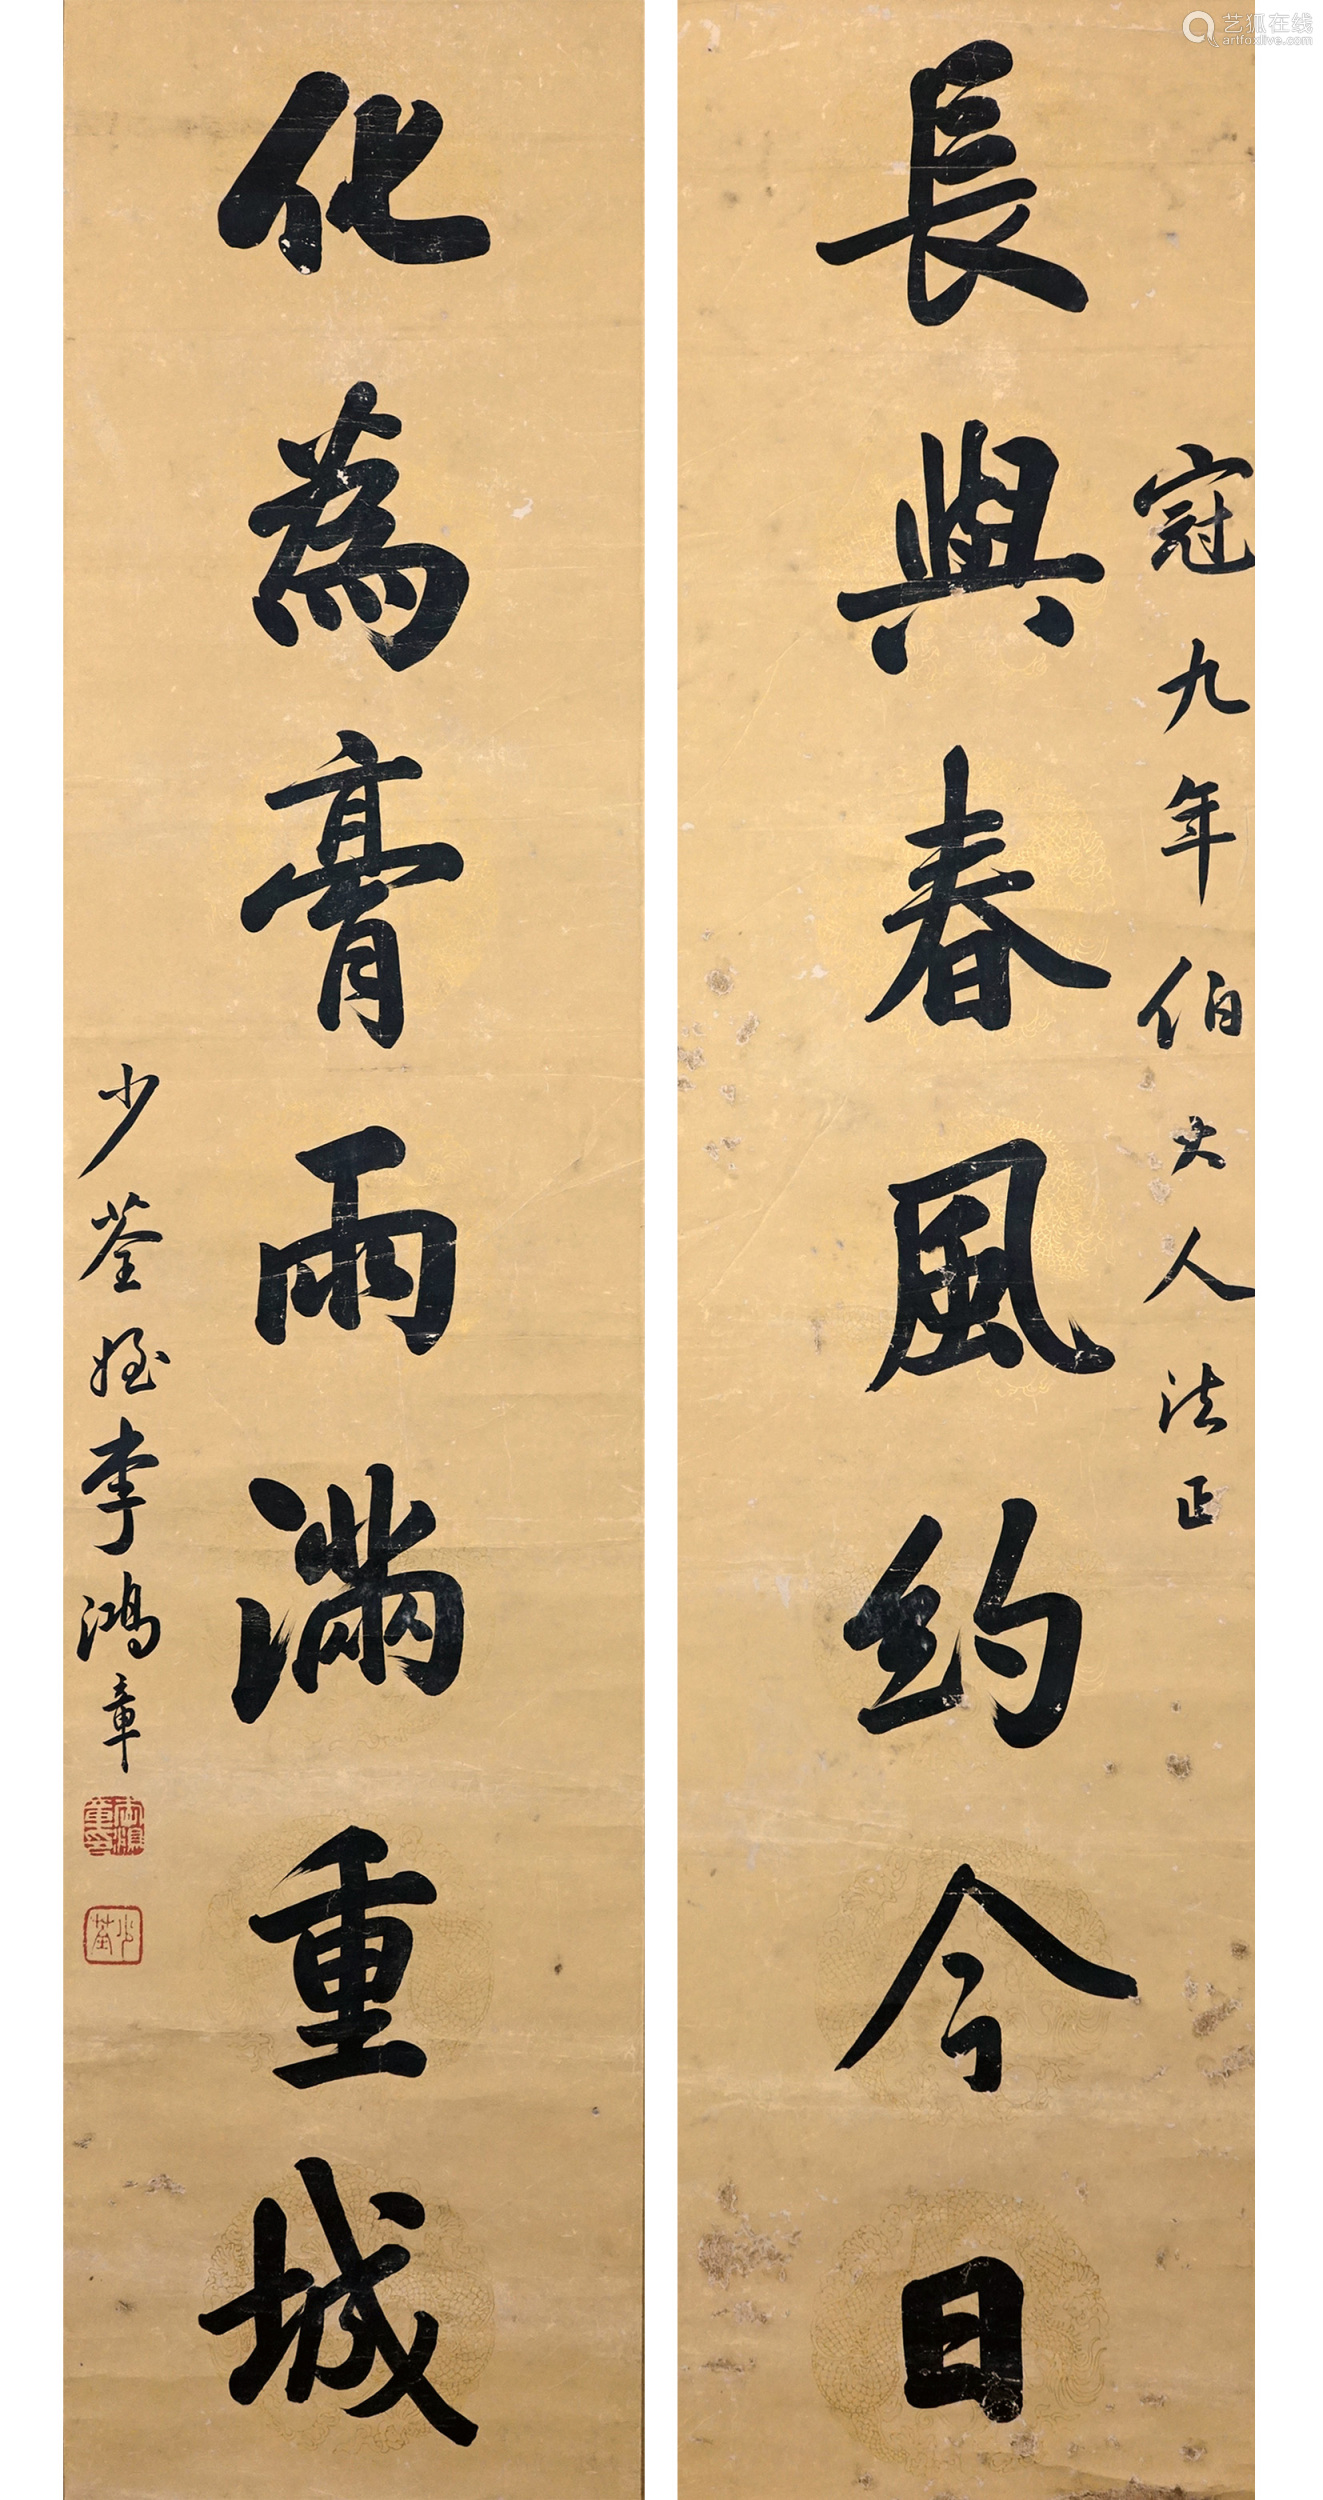 長與春風約今日
冠九年伯大人法正
化為膏雨滿重城
少荃姪李鴻章
少荃
艺狐在线
artfoxlive.com